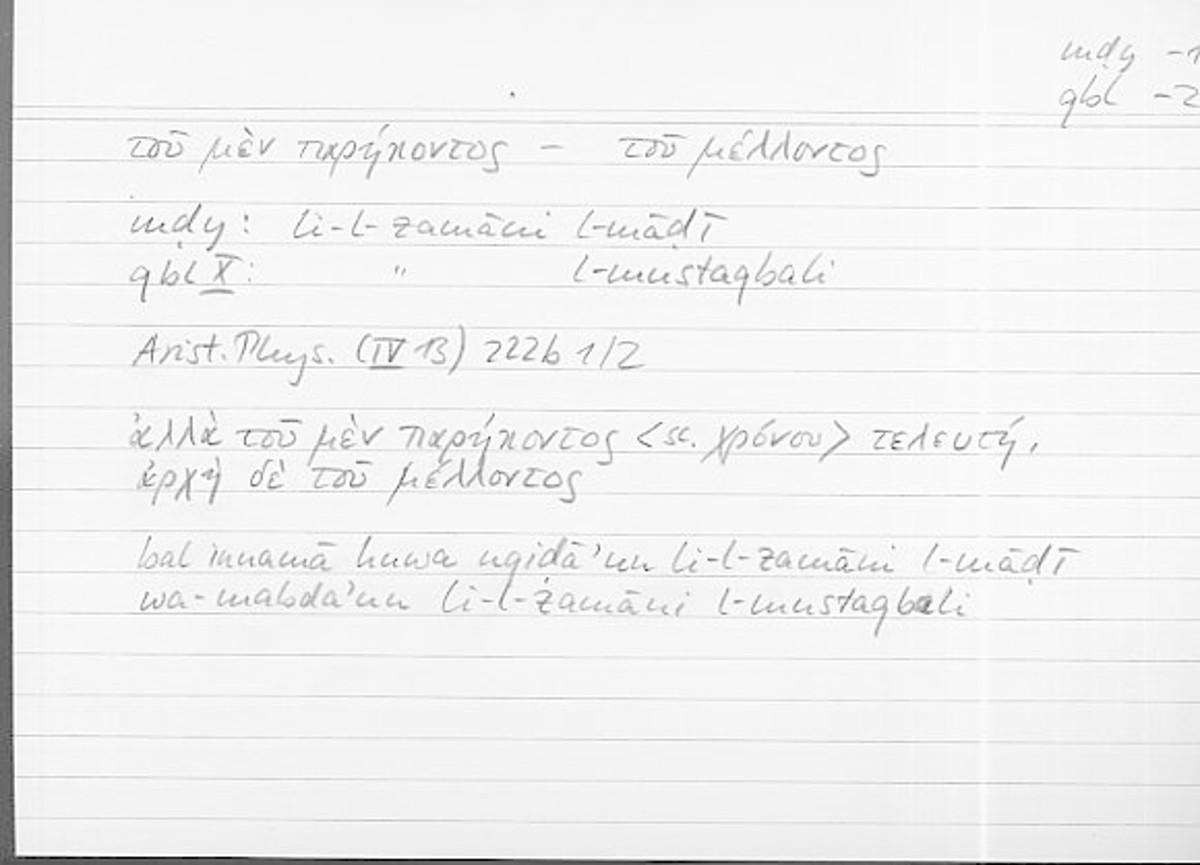 mḍy -1
qbl -2
τοῦ μὲν παρήκοντος – τοῦ μέλλοντος
mḍy: li-l-zamāni l-māḍī
qbl X: " l-mustaqbali
Arist. Phys. (IV 13) 222b 1/2
ἀλλὰ τοῦ μὲν παρήκοντος <sc. χρόνου> τελευτή,
ἀρχὴ δὲ τοῦ μέλλοντος
bal innamā huwa nqiḍā'un li-l-zamāni l-māḍī
wa-mabda'un li-l-zamāni l-mustaqbali